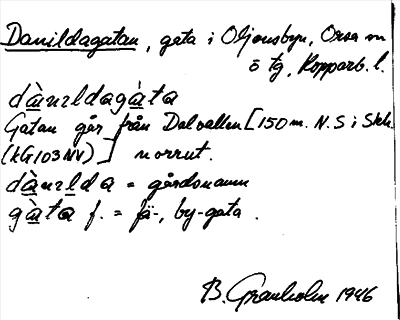 Danildagatan, gata i Oljonsbyn, Orsa sn
ö tg, Kopparb. l.
dànɩldagàta
Gatan går från Dalvallen [150 m. N.S i Skh.
(kG103NV)] norrut.
dànɩlda = gårdsnamn
gàta f. = fä-, by-gata.
B. Granholm 1946